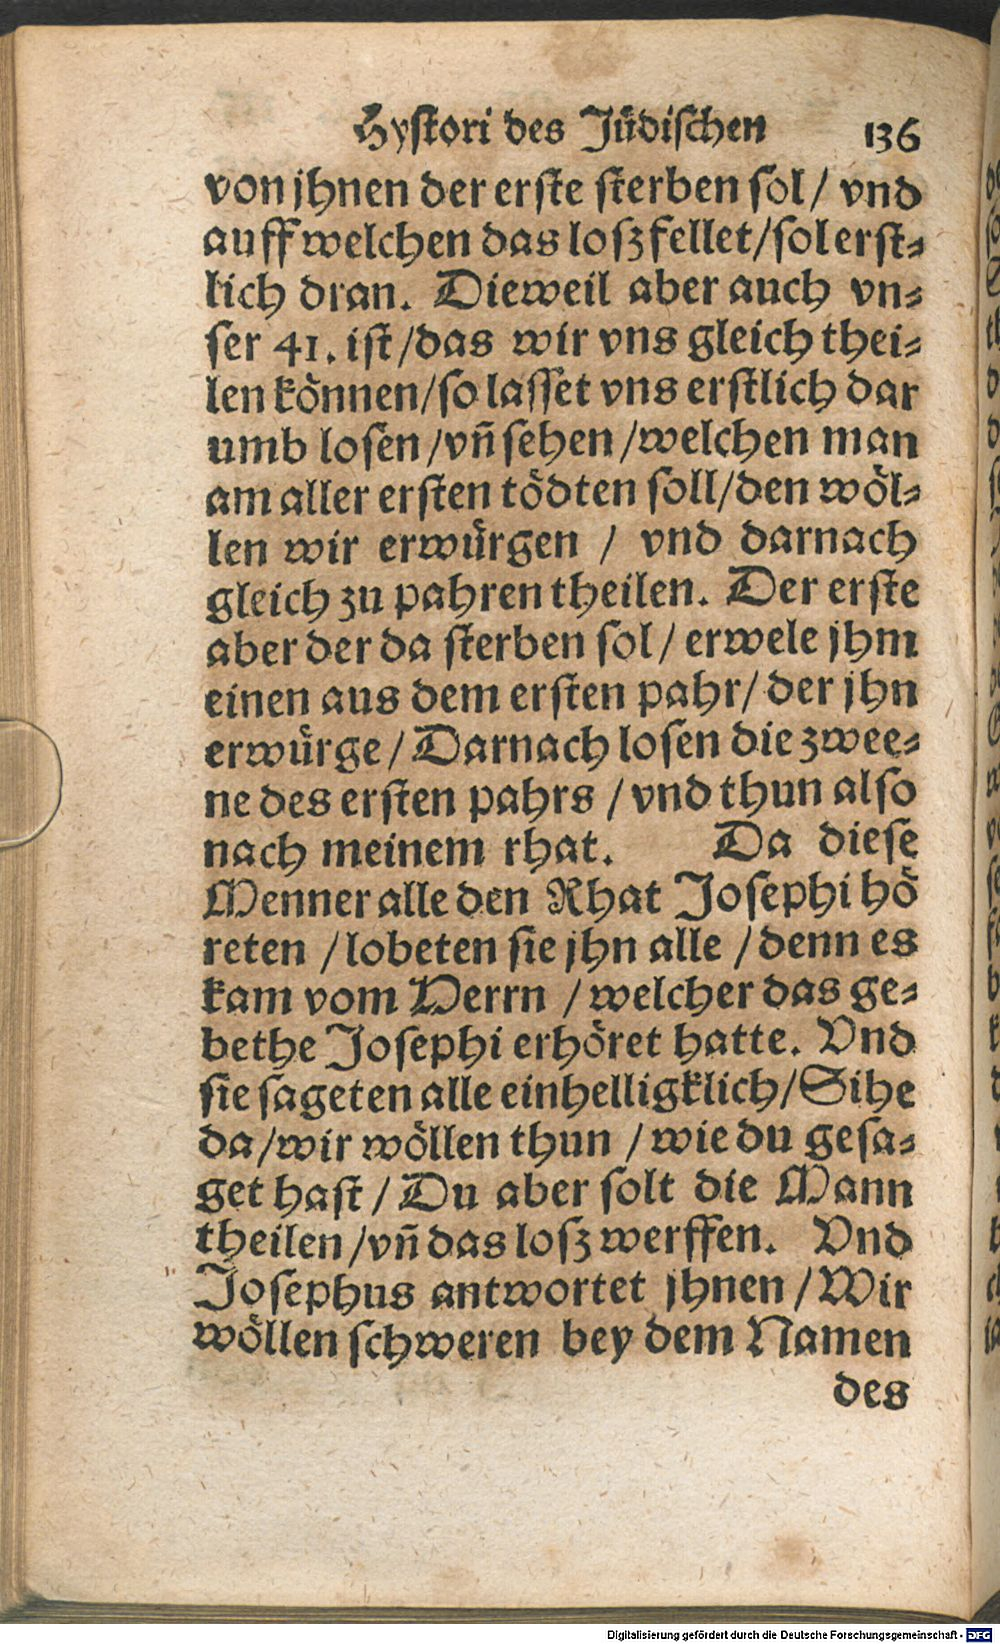 Hystori des Jüdischen 136
von jhnen der erste sterben sol/ vnd
auff welchen das losz fellet/sol erst-
lich dran. Dieweil aber auch vn-
ser 41. ist/das wir vns gleich thei-
len können/so lasset vns erstlich dar
umb losen/vn̄ sehen/welchen man
am aller ersten tödten soll/den wöl-
len wir erwürgen / vnd darnach
gleich zu pahren theilen. Der erste
aber der da sterben sol/ erwele jhm
einen aus dem ersten pahr/ der jhn
erwürge/ Darnach losen die zwee-
ne des ersten pahrs /vnd thun also
nach meinem rhat. Da diese
Menner alle den Rhat Josephi hö
reten /lobeten sie jhn alle /denn es
kam vom Herrn /welcher das ge-
bethe Josephi erhöret hatte. Vnd
sie sageten alle einhelligklich/Sihe
da/wir wöllen thun /wie du gesa-
get hast/ Du aber solt die Mann
theilen/vn̄ das losz werffen. Vnd
Josephus antwortet jhnen /Wir
wöllen schweren bey dem Namen
des
Digitalisierung gefördert durch die Deutsche Forschungsgemeinschaft - DFG